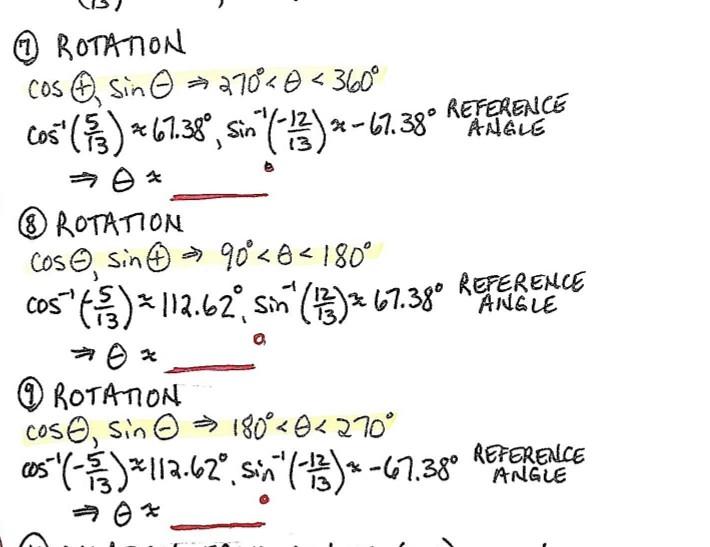 ⑦ ROTATION
cos ⊕, sin ⊖ ⇒ 270° < θ < 360°
cos⁻¹(5/13) ≈ 67.38°, sin⁻¹(-12/13) ≈ -67.38° REFERENCE ANGLE
⇒ θ ≈ ______°
⑧ ROTATION
cos ⊖, sin ⊕ ⇒ 90° < θ < 180°
cos⁻¹(-5/13) ≈ 112.62°, sin⁻¹(12/13) ≈ 67.38° REFERENCE ANGLE
⇒ θ ≈ ______°
⑨ ROTATION
cos ⊖, sin ⊖ ⇒ 180° < θ < 270°
cos⁻¹(-5/13) ≈ 112.62°, sin⁻¹(-12/13) ≈ -67.38° REFERENCE ANGLE
⇒ θ ≈ ______°